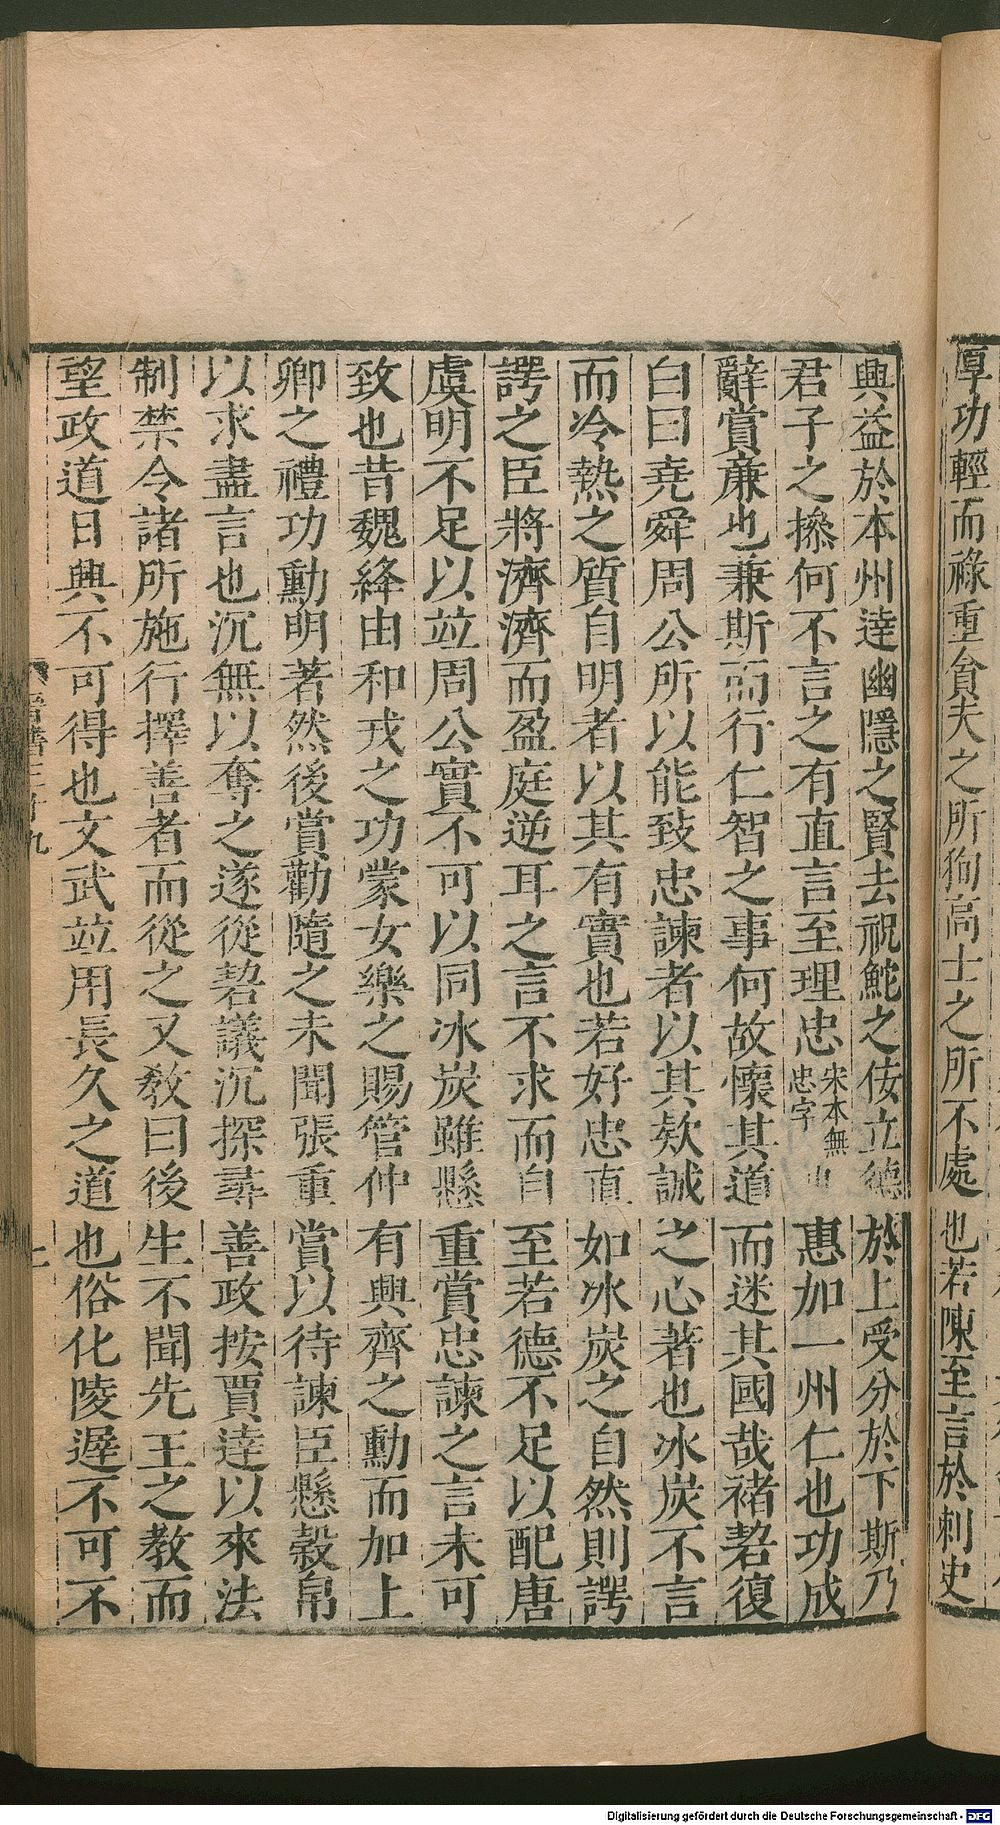 厚功輕而祿重貪夫之所狥高士之所不處也若陳至言於刺史
興益於本州達幽隱之賢去祝鮀之佞立德於上受分於下斯乃
君子之操何不言之有直言至理忠宋本無忠字也惠加一州仁也功成
辭賞廉也兼斯而行仁智之事何故懷其道而迷其國哉褚䂮復
白曰堯舜周公所以能致忠諫者以其欵誠之心著也冰炭不言
而冷熱之質自明者以其有實也若好忠直如冰炭之自然則諤
諤之臣將濟濟而盈庭逆耳之言不求而自至若德不足以配唐
虞明不足以竝周公實不可以同冰炭雖懸重賞忠諫之言未可
致也昔魏絳由和戎之功蒙女樂之賜管仲有興齊之勳而加上
卿之禮功勳明著然後賞勸隨之未聞張重賞以待諫臣懸穀帛
以求盡言也沉無以奪之遂從䂮議沉探尋善政按賈逵以來法
制禁令諸所施行擇善者而從之又敎曰後生不聞先王之教而
望政道日興不可得也文武竝用長久之道也俗化陵遲不可不
晉書三十九
Digitalisierung gefördert durch die Deutsche Forschungsgemeinschaft - DFG